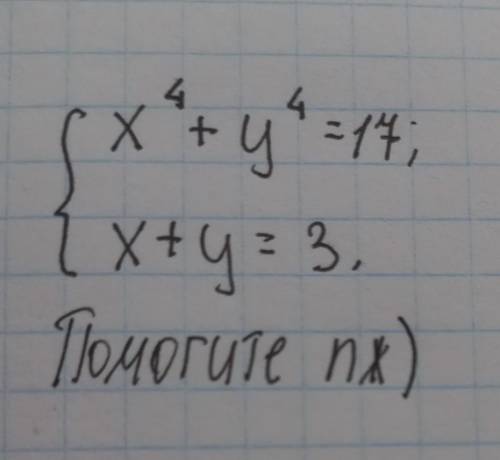 x⁴ + y⁴ = 17;
x + y = 3.
Помогите пж)